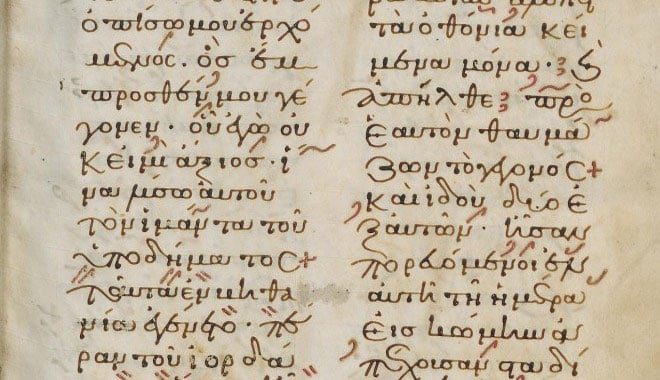 ὀπίσω μου ἐρχό
μενος· ὃς ἔμ
προσθέν μου γέ
γονεν· οὗ ἐγὼ οὐ
κ εἰμὶ ἄξιος· ἵ
να λύσω αὐτοῦ
τὸν ἱμάντα τοῦ
ὑποδήματος+
Ταῦτα ἐν βηθα
νία ἐγένετο· πέ
ραν τοῦ ἰορδά
τὰ ὀθόνια κεί
μενα μόνα· καὶ
ἀπῆλθε πρὸ
ἑαυτὸν θαυμά
ζων τὸ γεγονός+
Καὶ ἰδοὺ δύο ἐ
ξ αὐτῶν· ἦσαν
πορευόμενοι ἐν
αὐτῆ τῆ ἡμέρα
εἰς κώμην ἀ
πέχουσαν σταδί